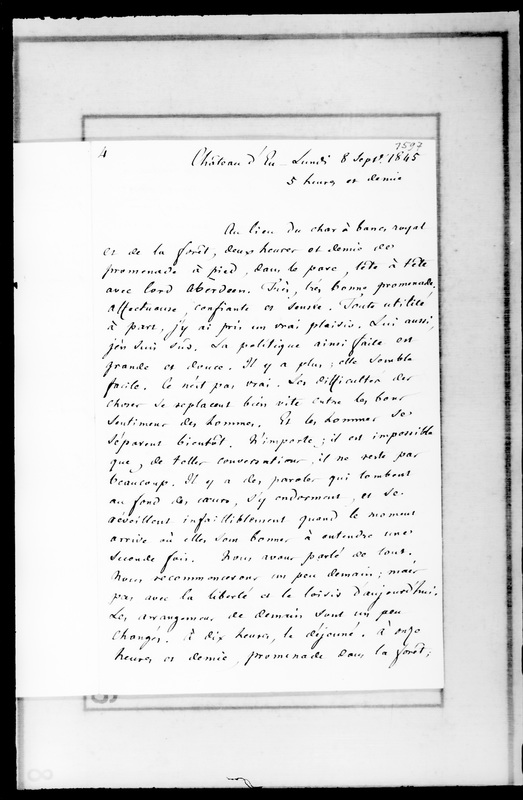 4
7597
Château d'Eu - Lundi 8 Sept. 1845
5 heures et demie
Au lieu du char à bancs royal
et de la forêt, deux heures et demie de
promenade à pied, dans le parc, tête à tête
avec lord Aberdeen. Très, très bonne promenade,
affectueuse, confiante et sensée. Toute utilité
à part, j'y ai pris un vrai plaisir. Lui aussi,
j'en suis sûr. La politique ainsi faite est
grande et douce. Il y a plus ; elle semble
facile. Ce n'est pas vrai. Les difficultés des
choses se replacent bien vite entre les bons
sentimens des hommes. Et les hommes se
séparent bientôt. N'importe ; il est impossible
que, de telles conversations, il ne reste pas
beaucoup. Il y a des paroles qui tombent
au fond des cœurs, s'y endorment, et se
réveillent infailliblement quand le moment
arrive où elles sont bonnes à entendre une
seconde fois. Nous avons parlé de tout.
Nous recommencerons un peu demain ; mais
pas avec la liberté et le loisir d'aujourd'hui.
Les arrangemens de demain sont un peu
changés. à dix heures, le déjeuné. à onze
heures et demie, promenade dans la forêt ;